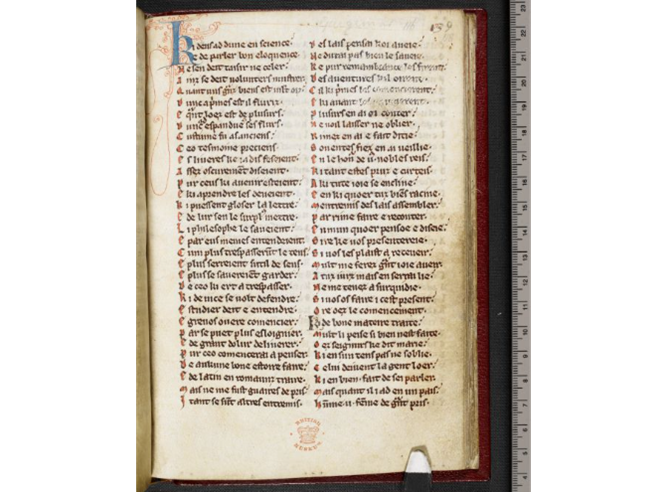 Ki deus ad dune en science
E de parler bon eloquence
Ne sen deit taisir ne celer
Ainz se deit volunters mustrer
Quant uns granz biens est mult oiz
Dunc a primes est il fluriz
E quant loez est de plusurs
Dunc ad espandue ses flurs
Custume fu as anciens
Ceo tesmoine preciens
Es livres ke jadis feseient
Assez oscurement diseient
Pur ceus ki a venir esteient
E ki aprendre les deveient
K i puessent gloser la lettre
E de lur sen le surplus mettre
Li philesophe le saveient
E par eus memes entendeient
Cum plus trespasserunt le tens
E plus serreient sutil de sens
E plus se savereient garder
De ceo ki ert a trespasser
Ki de vice se volt defendre
Estudier deit e entendre
E grevos overe comencier
Par se puet plus esloignier
E de grant dolur delivrer
Pur ceo comencerai a penser
De aukune bone estoire faire
E de latin en romaunz traire
Mais ne me fust guaires de pris
Itant se sunt altres entremis
Des lais pensai koi aveie
Ne dutai pas bien le saveie
Ke pur remambrance les
Des aventures kil oirent
Cil ki primes les comencierent
E ki avant les enveierent
Plusurs en ai oi conter
Ne voil laisser ne oblier
Rimez en ai e fait ditie
Soventes fiez en ai veillie
En le honur de vus nobles reis
Ki tant estes pruz e curteis
A ki tute joie se encline
E en ki quoer tuz biens racine
Mentremis des lais assembler
Par rime faire e reconter
En mun quoer pensoe e diseie
Sire ke vos presentereie
Si vos les plaist a receveir
Mult me ferez grant joie aveir
A tuz jurz mais en serrai lie
Ne me tenez a surquidie
Si vos os faire icest present
Ore oez le comencement
Ki de bone mateire traite
Mult li peise si bien nest faite
Oez seignurs ke dit marie
Ki en sun tens pas ne soblie
Celui deivent la gent loer
Ki en bien fait de sei parler
Mais quant il i ad en un pais
Humme u femme de grant pris
BRITISH
MUSEUM